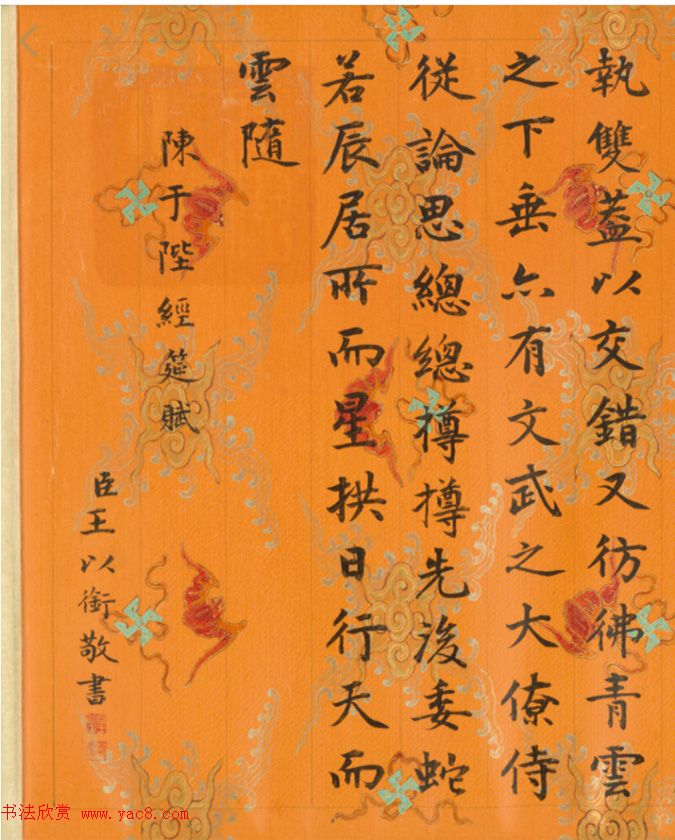 執雙蓋以交錯又彷彿青雲
之下垂亦有文武之大僚侍
從論思總總樽樽先後委蛇
若辰居所而星拱日行天而
雲隨
陳于陛經筵賦
臣王以銜敬書
书法欣赏 www.yac8.com